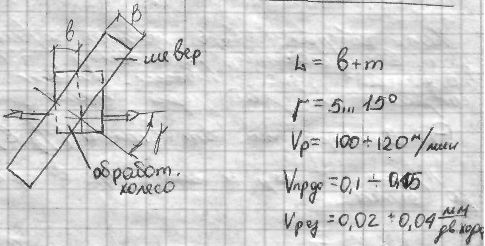 в
B
шевер
γ
обработ.
колесо
L = в+m
γ = 5... 15°
Vр = 100 ÷ 120 м/мин
Vпрдо = 0,1 ÷
Vрез = 0,02 ÷ 0,04 мм/дв.хода